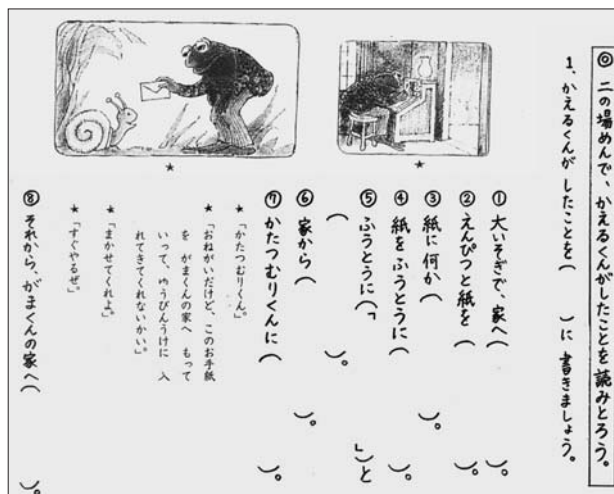 ◎ 二の場めんで、かえるくんがしたことを読みとろう。
1、かえるくんが したことを(　　)に 書きましょう。
① 大いそぎで、家へ(　　)。
② えんぴつと紙を(　　)。
③ 紙に何か(　　)。
④ 紙をふうとうに(　　)。
⑤ ふうとうに(「　　」)と
(　　)。
⑥ 家から(　　)。
⑦ かたつむりくんに(　　)。
★「かたつむりくん。」
★「おねがいだけど、このお手紙
を がまくんの家へ もって
いって、ゆうびんうけに 入
れてきてくれないかい。」
★「まかせてくれよ。」
★「すぐやるぜ。」
⑧ それから、がまくんの家へ(　　)。